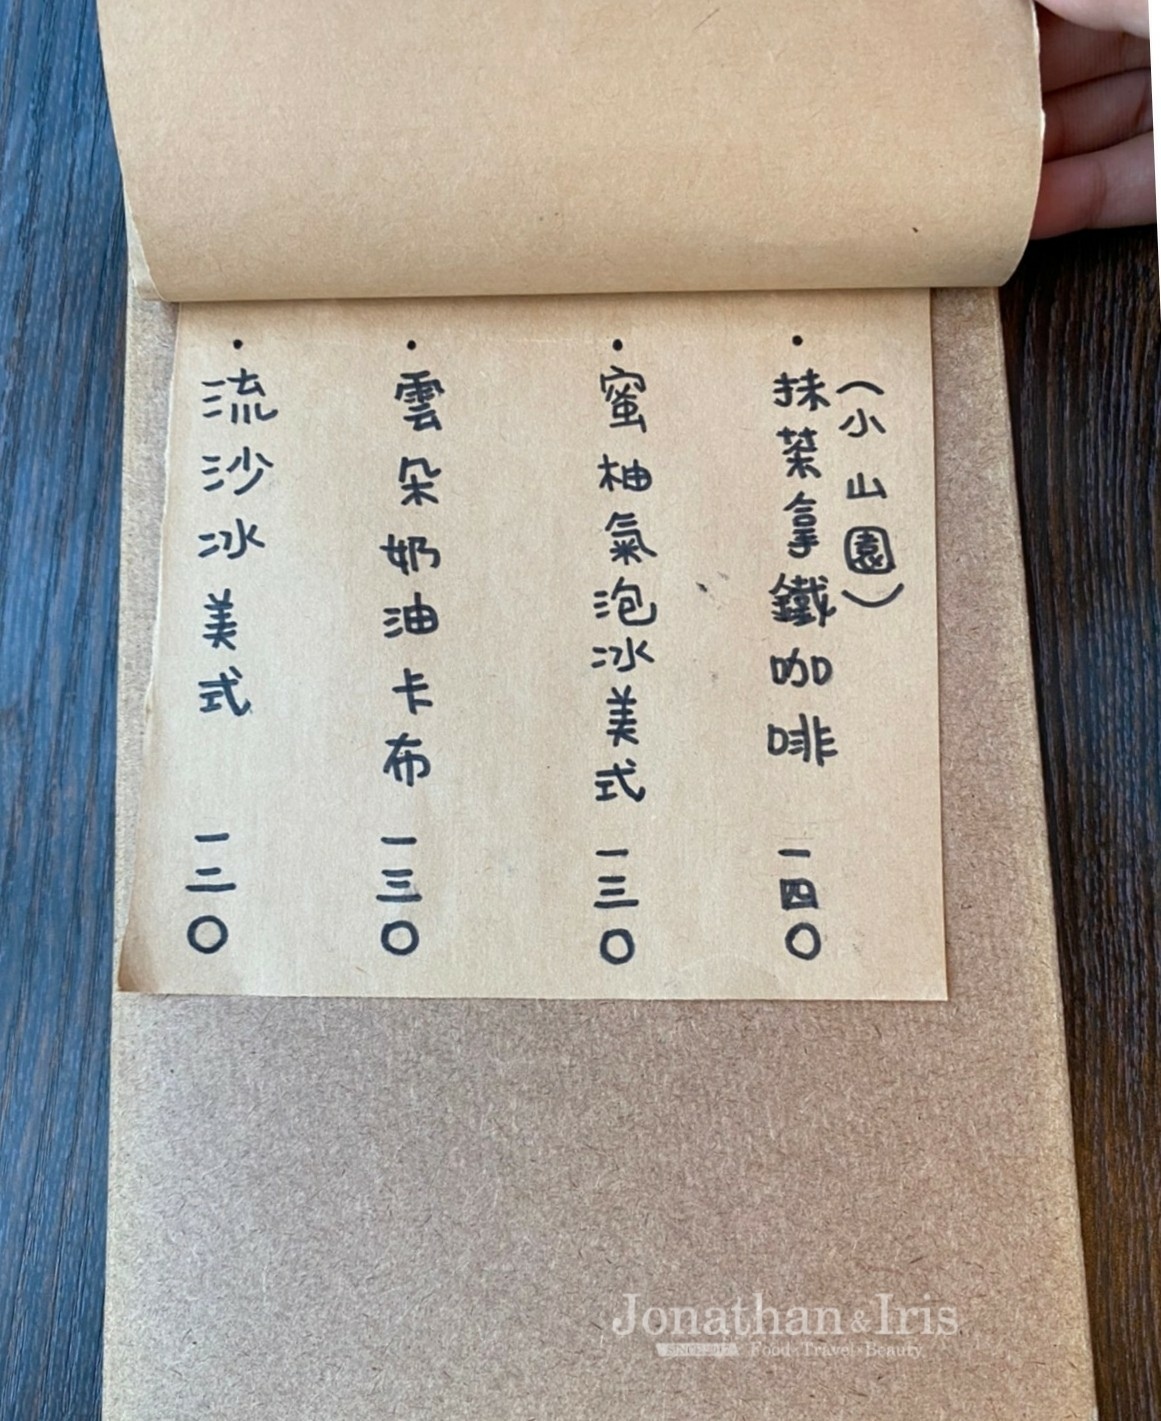 (小山園)
・抹茶拿鐵咖啡 一四〇
・蜜柚氣泡冰美式 一三〇
・雲朵奶油卡布 一三〇
・流沙冰美式 一二〇
Jonathan&Iris
Food・Travel・Beauty